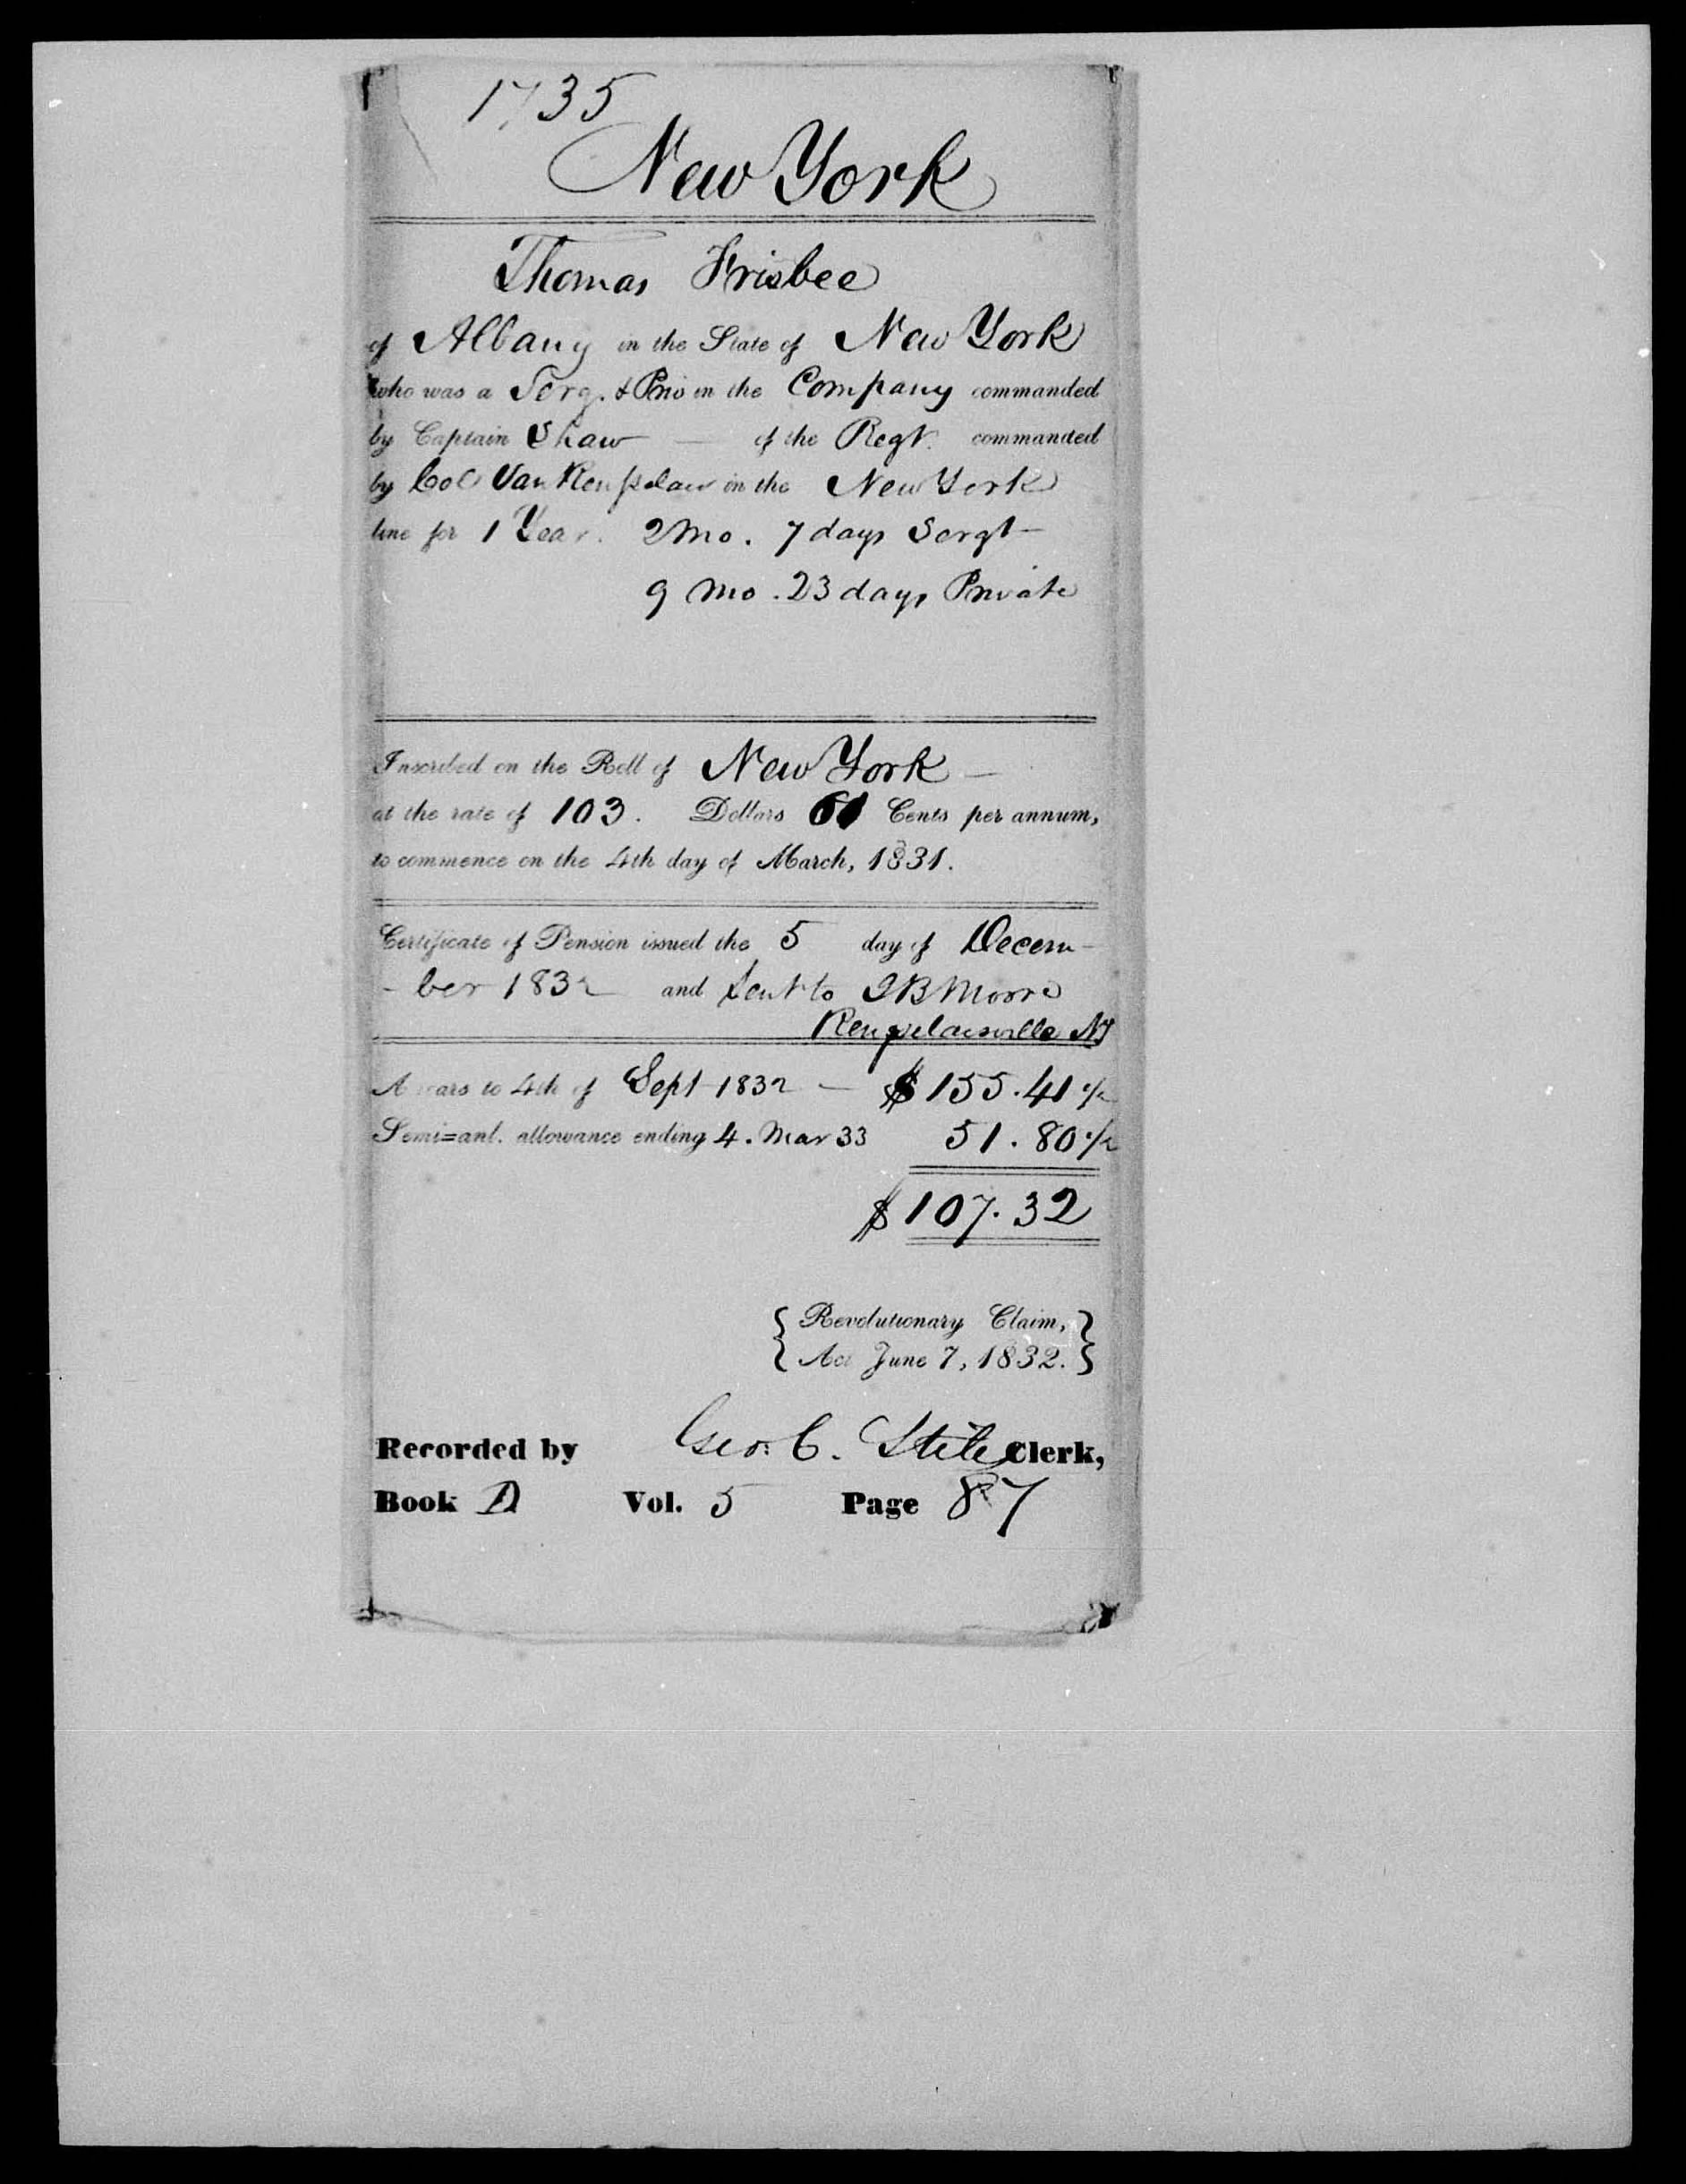 1735
New York
Thomas Frisbee
of Albany in the State of New York
who was a Serg. & Priv in the Company commanded
by Captain Shaw — of the Regt. commanded
by Col Van Renselaer in the New York
line for 1 Year. 2 Mo. 7 days Sergt —
9 Mo. 23 days Private
Inscribed on the Roll of New York —
at the rate of 103. Dollars 61 Cents per annum,
to commence on the 4th day of March, 1831.
Certificate of Pension issued the 5 day of Decem-
-ber 1832 and Sent to Moore
Renselaerville NY
Arrears to 4th of Sept 1832 — $155.41
Semi=anl. allowance ending 4. Mar 33 51.80
$107.32
{ Revolutionary Claim, }
{ Act June 7, 1832. }
Recorded by Geo: C. Clerk,
Book D Vol. 5 Page 87